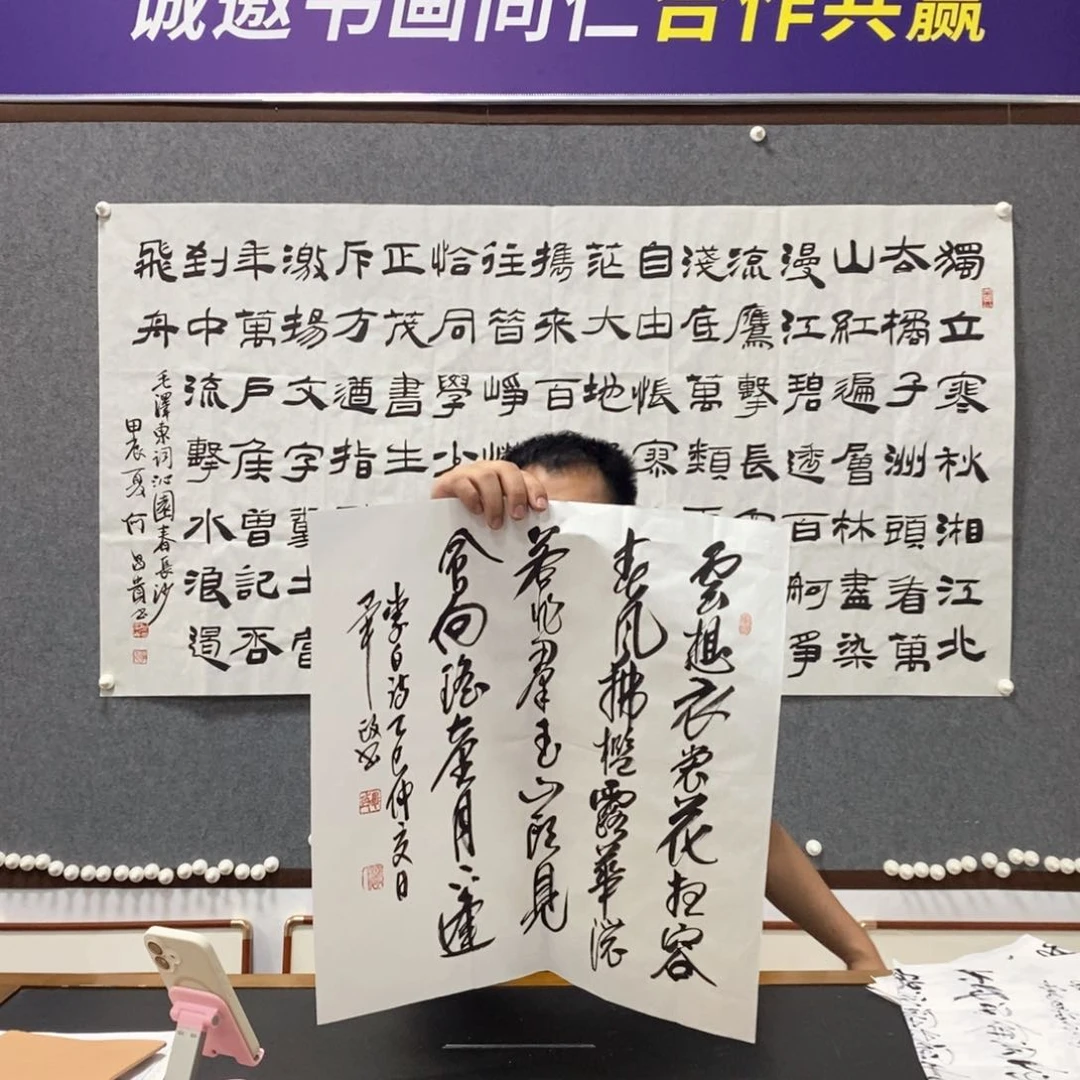 诚邀书画同仁合作共赢
獨立寒秋湘江北
去橘子洲頭看萬
山紅遍層林盡染
漫江碧透百舸爭
流鷹擊長
淺底萬類
自由悵寥
茫大地
攜來百
往昔崢
恰同學少
正茂書生
斥方遒指
激揚文字糞土當
年萬戶侯曾記否
到中流擊水浪遏
飛舟
毛澤東詞沁園春長沙
甲辰夏何昌貴書
雲想衣裳花想容
春風拂檻露華濃
若非羣玉山頭見
會向瑤臺月下逢
李白詩乙巳仲夏日